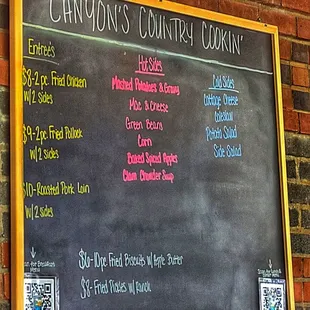 CANYON'S COUNTRY COOKIN'
Entree's
$8-2 pc. Fried Chicken
w/2 sides
$9-2pc Fried Pollock
w/2 sides
$10-Roasted Pork Loin
w/2 sides
Hot Sides
Mashed Potatoes & Gravy
Mac & Cheese
Green Beans
Corn
Baked Spiced Apples
Clam Chowder Soup
Cold Sides
Cottage Cheese
Coleslaw
Potato Salad
Side Salad
$6-10pc Fried Biscuits w/Apple Butter
$8-Fried Pickles w/Ranch
Scan for Breakfast
Menu
Scan for Lunch
Menu